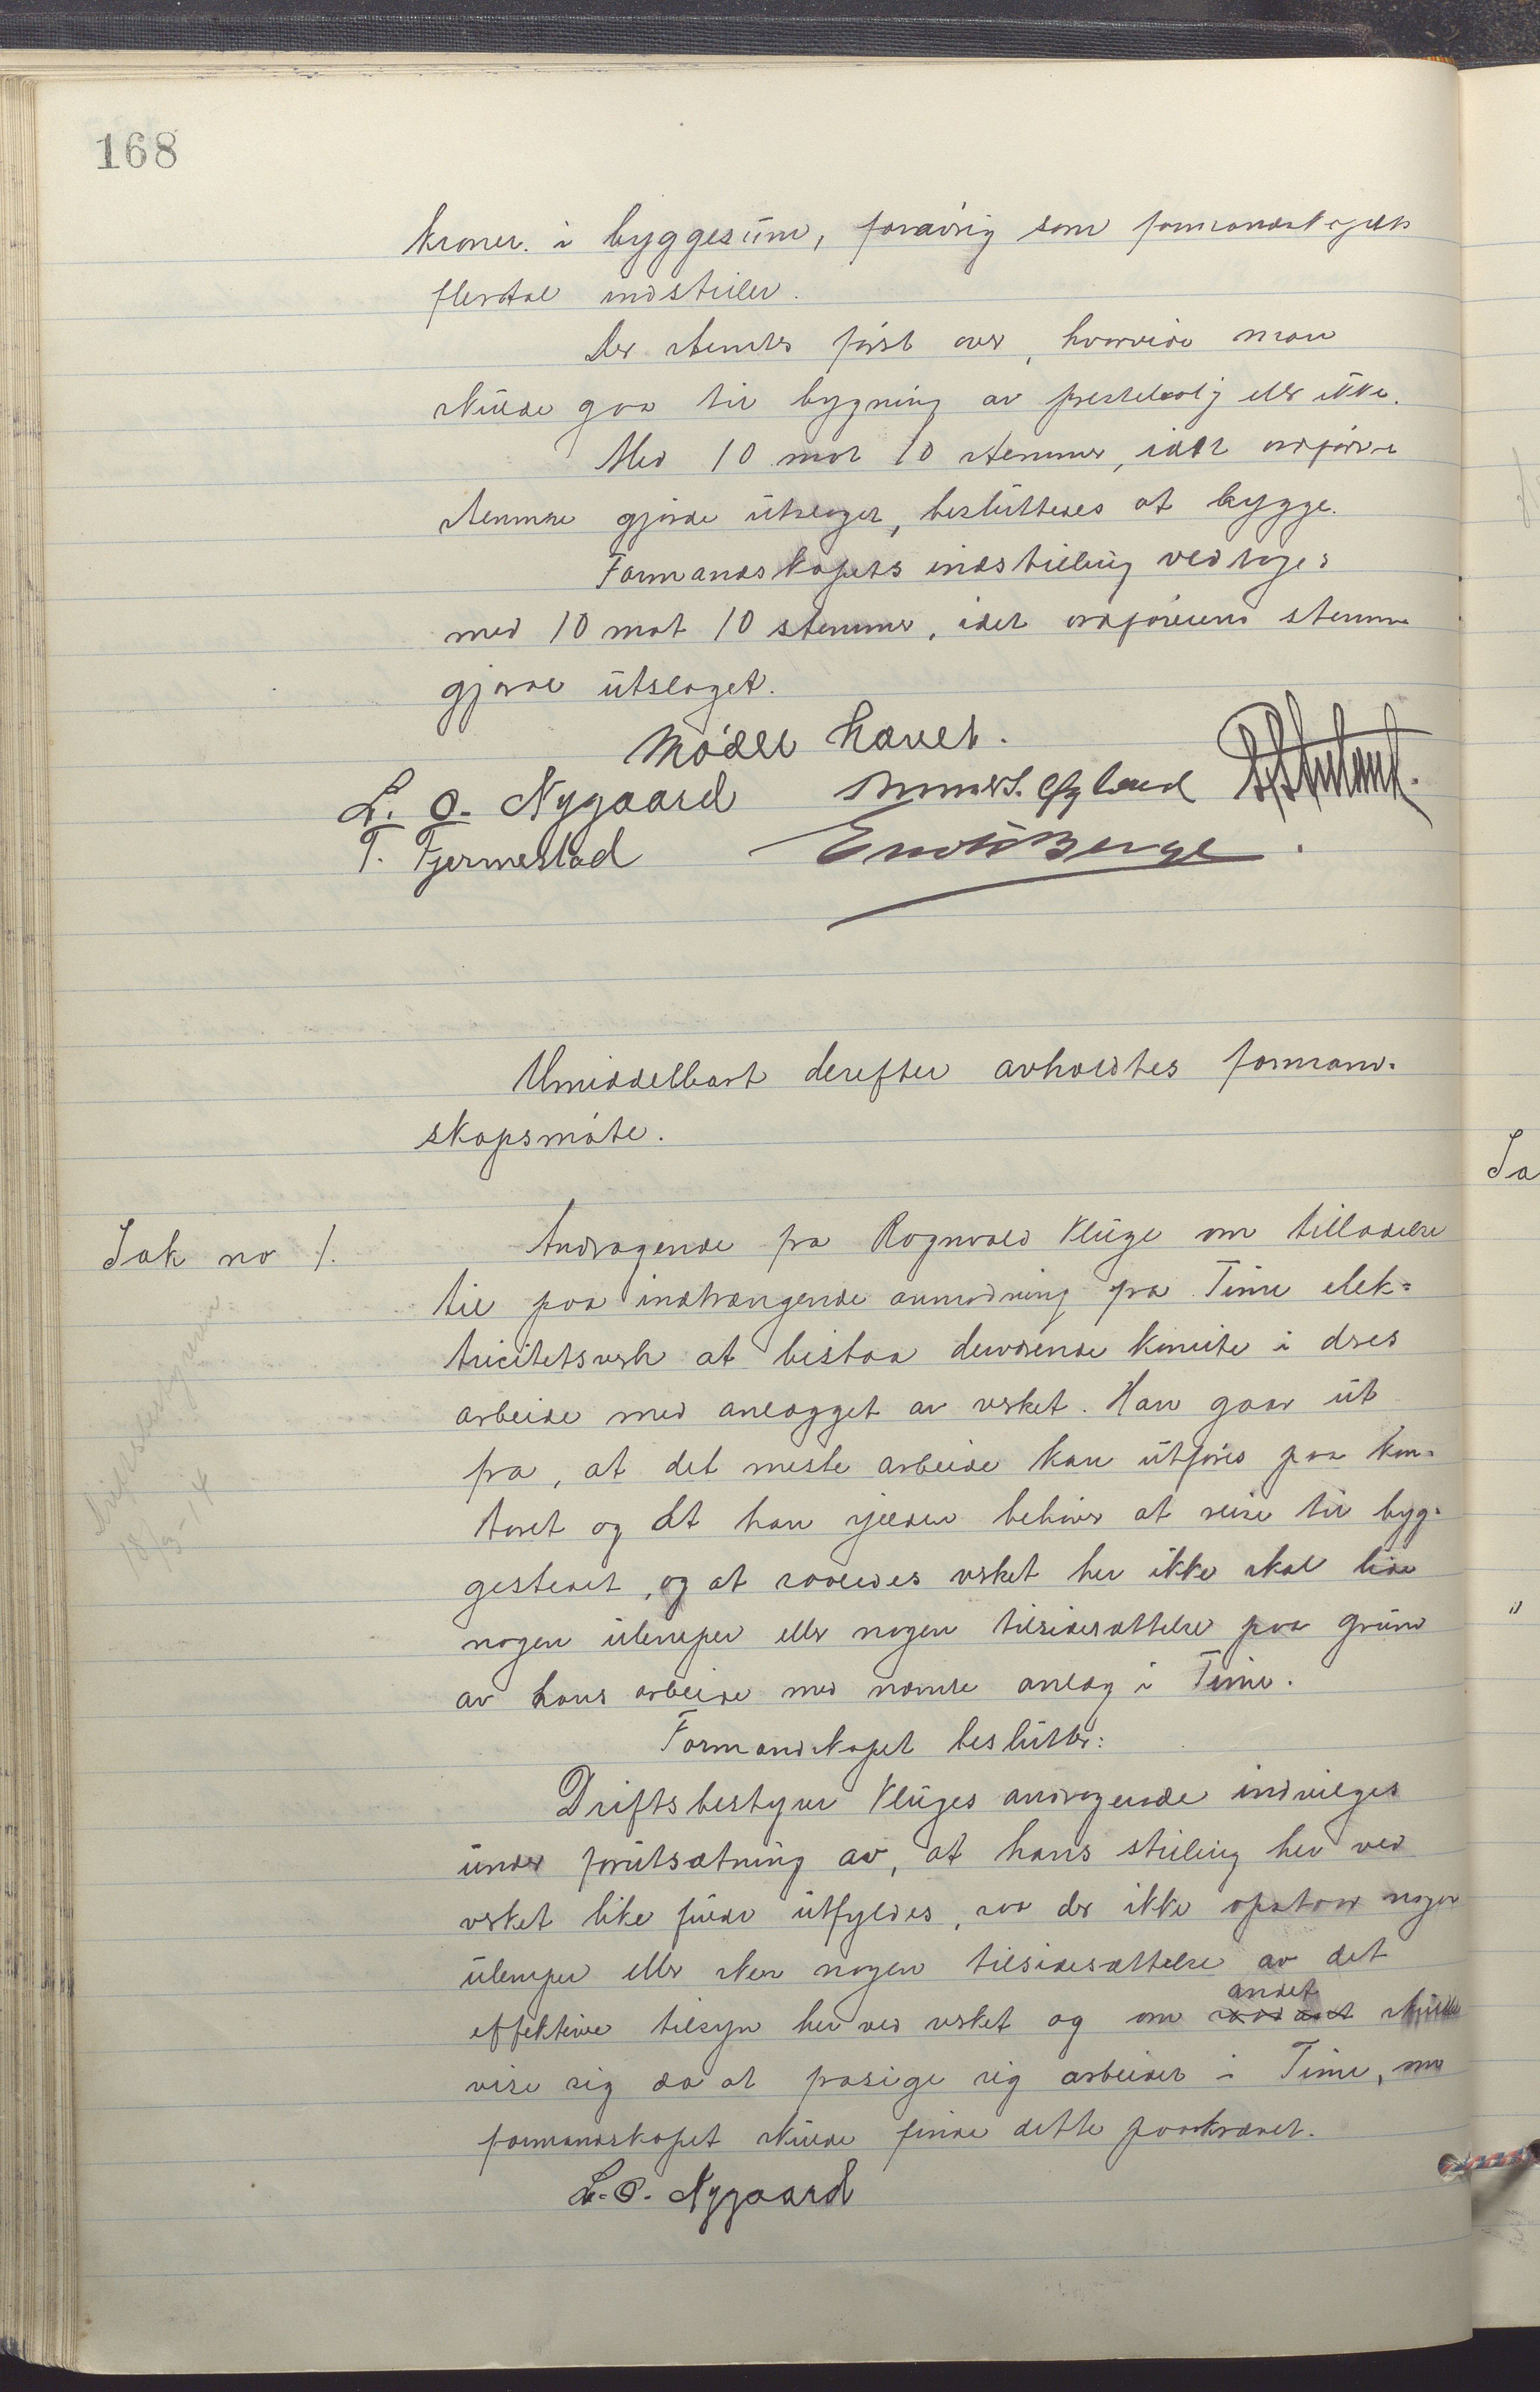 168
kroner. i byggesum, forøvrig som formandskapets
flertal indstiller.
Der stemtes først over, hvorvidt man
skulde gaa til bygning av prestebolig eller ikke.
Med 10 mot 10 stemmer, idet ordførers
stemme gjorde utslaget, besluttedes at bygge.
Formandskapets indstilling vedtoges
med 10 mot 10 stemmer, idet ordførerens stemme
gjorde utslaget.
Mødet hævet.
L. O. Nygaard
T. Fjermestad
Umiddelbart derefter avholdtes formand-
skapsmøte.
Sak no 1.
Andragende fra Rognvald Kluge om tilladelse
til paa indtrængende anmodning fra Time elek-
tricitetsverk at bistaa derværende komite i dres
arbeide med anlægget av verket. Han gaar ut
fra, at det meste arbeide kan utføres paa kon-
toret og at han sjelden behøver at reise til byg-
gestedet, og at saaledes verket her ikke skal lide
nogen ulemper eller nogen tilsidesættelse paa grund
av hans arbeide med nævnte anlæg i Time.
Formandskapet beslutter:
Driftsbestyrer Kluges andragende indvilges
under forutsætning av, at hans stilling her ved
verket like fuldt utfyldes, saa der ikke opstaar nogen
ulemper eller sker nogen tilsidesættelse av det
effektive tilsyn her ved verket og om andet skulde
vise sig da at frasige sig arbeidet i Time, om
formandskapet skulde finde dette paakrævet.
L. O. Nygaard
Driftsbestyreren
18/3-14